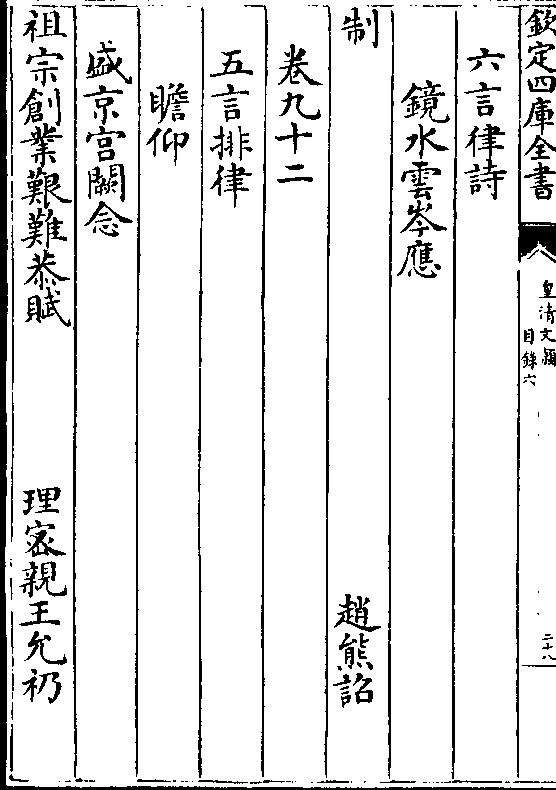 欽定四庫全書
皇清文穎
目錄六
二十八
六言律詩
鏡水雲岑應
制 趙熊詔
卷九十二
五言排律
瞻仰
盛京宫闕念
祖宗創業艱難恭賦 理宻親王允礽